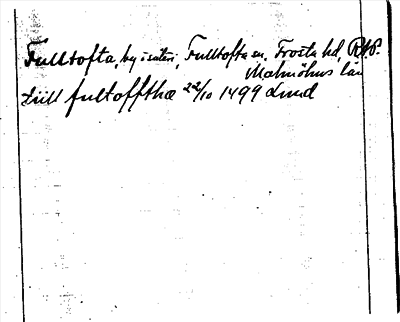 Fulltofta, by o säteri, Fulltofta sn, Frosta hd, RAP.
Malmöhus län
tiill fultoffthæ 22/10 1499 Lund